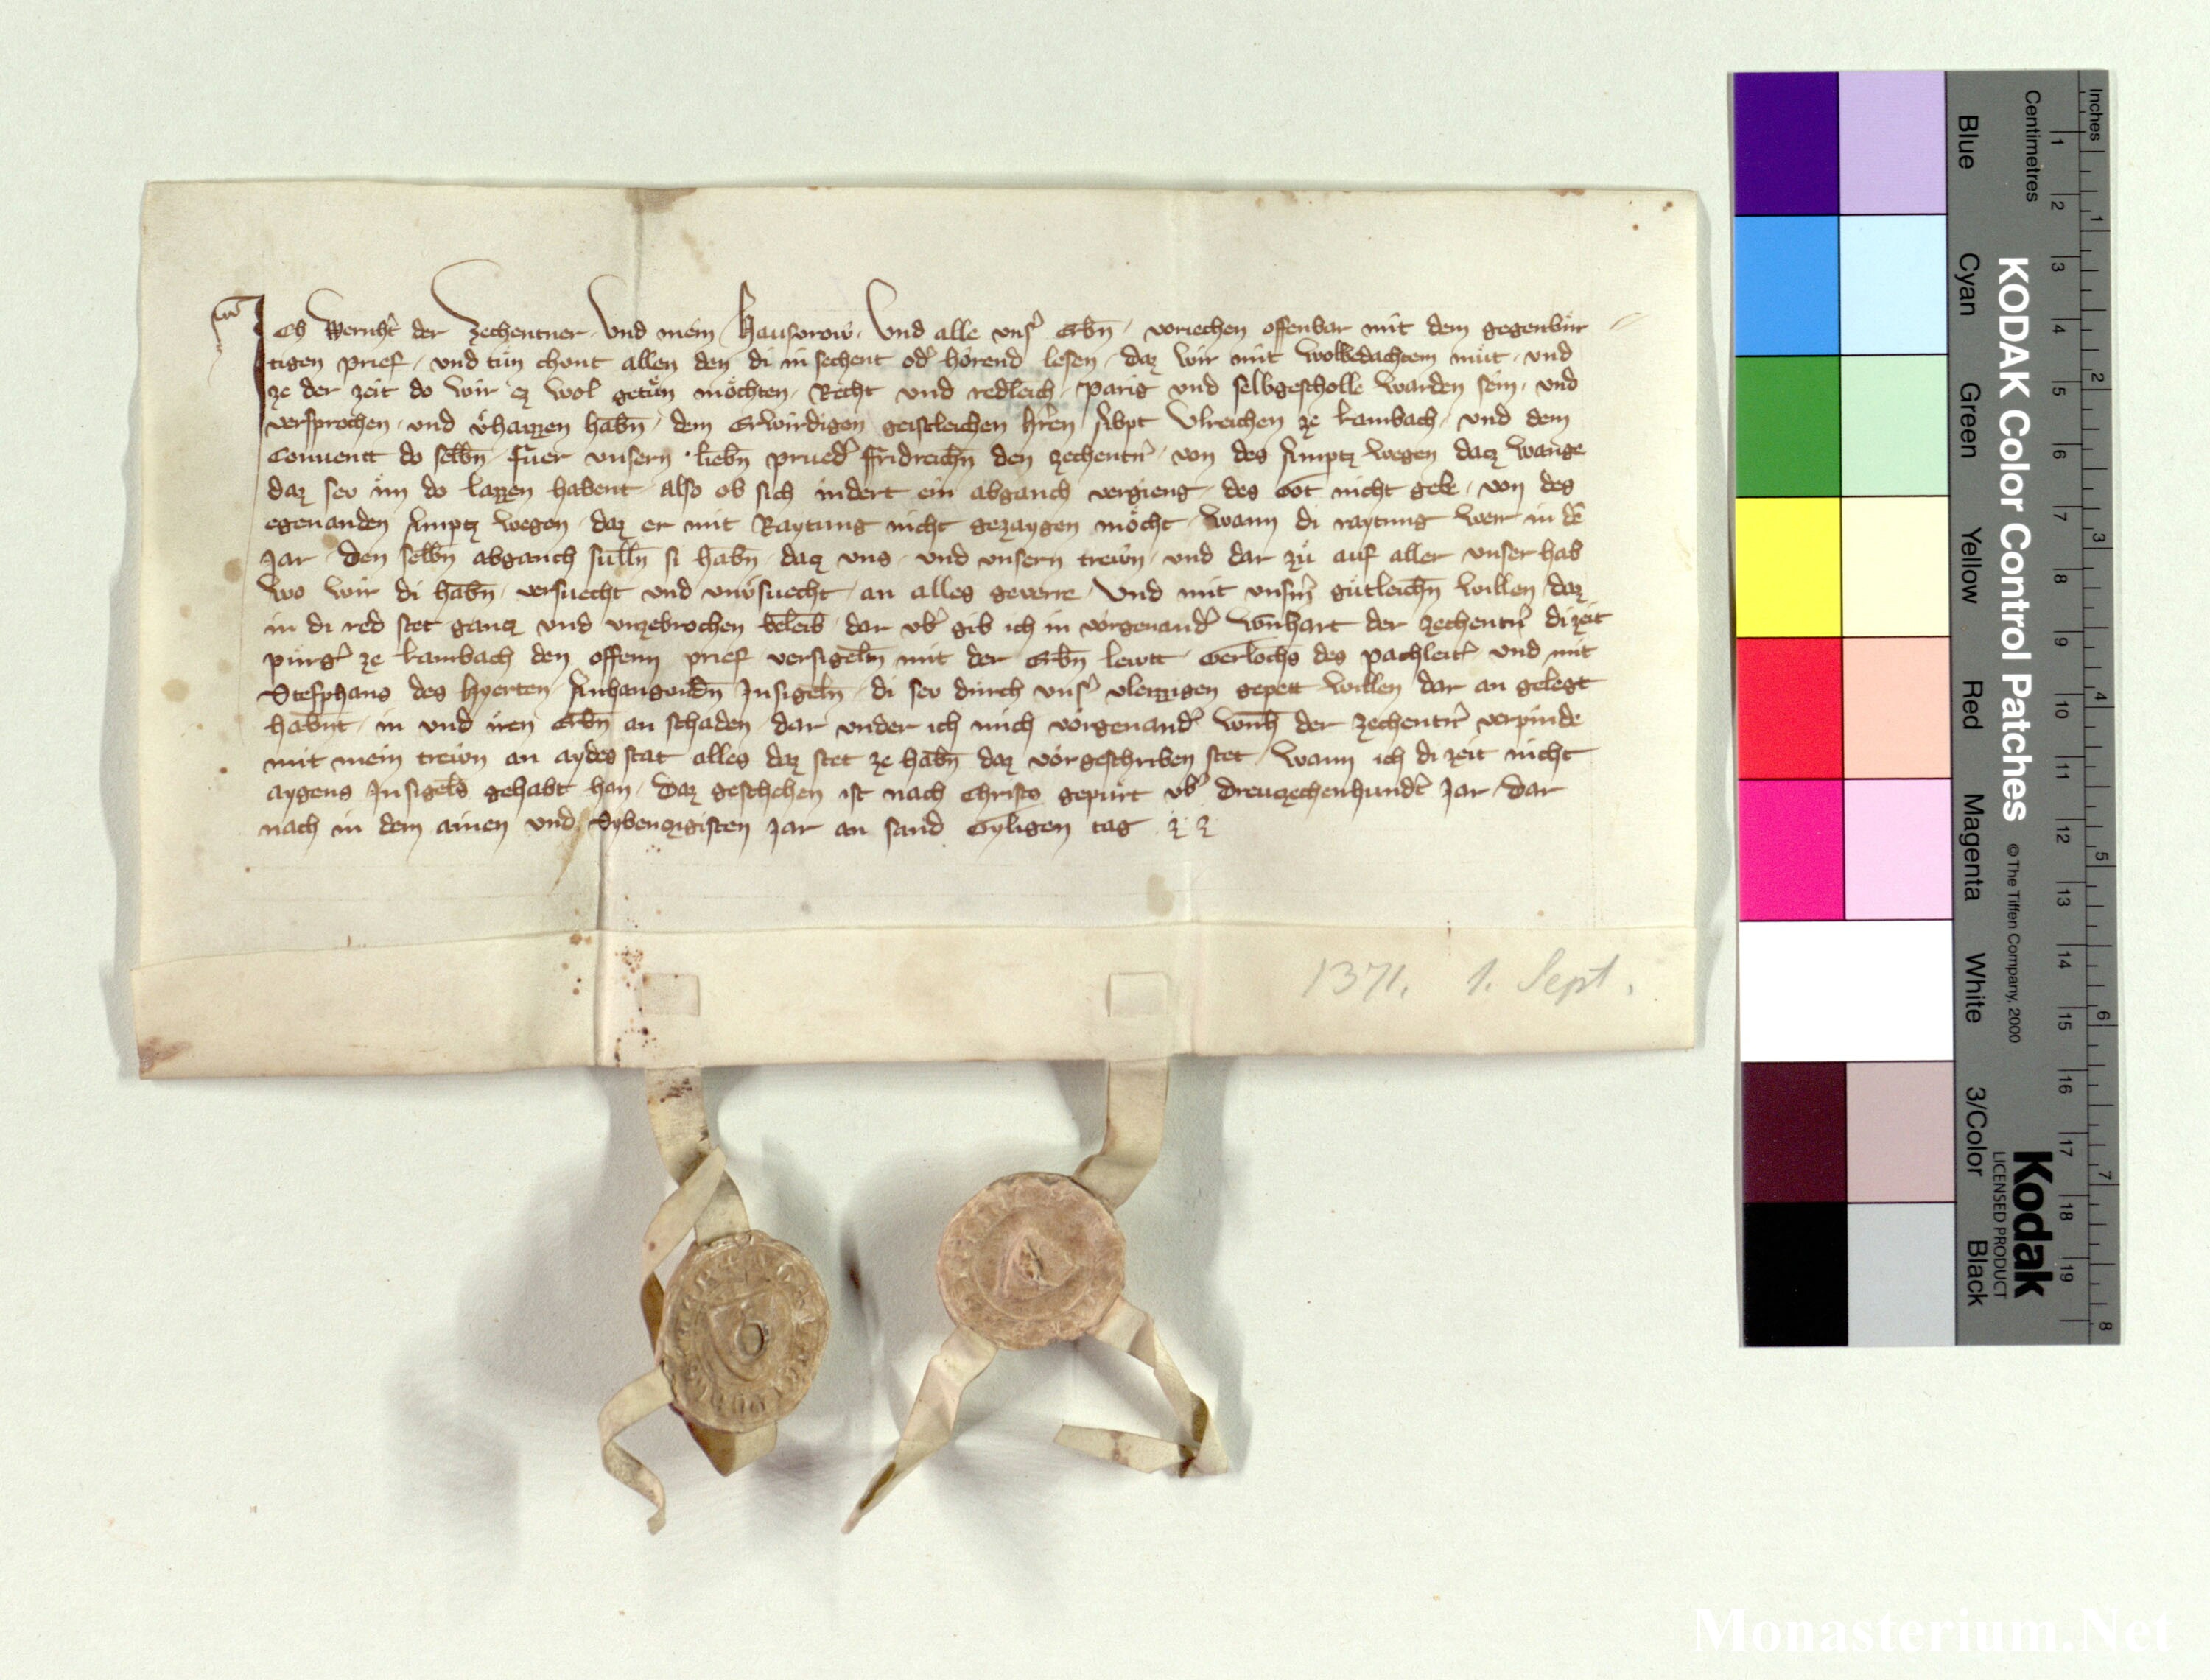 Ich Wernhͬt der Zechentner und mein Hausvrow und alle unsͬ Erbn̄ voriechen offenbar mit dem gegenbür
tigen prief und tün chunt allen den di in sechent odͬ hörend lesen daz wir mit wolbedachtem müt und
ze der zeit do wir ez wol getün möchten Recht und redleich parig und selbgescholle warden sein und
versprochen und v̈haizzen habn̄ dem Erwirdigen geistleichen hr̄en Abpt Ulreichen ze Lambach und dem
Conuentt do selbn̄ Füer unsern liebn̄ pruedͬ Fridreichn̄ den zechentnͬ von des Amptz wegen dacz Wange
daz sev im do lazzen habent also ob sich indert ein abganch vergieng des Got nicht gebe von des
egenanden Amptz wegen daz er mit Raytung nicht gezaygen möcht wann di raytung wer in dē
Jar den selbn̄ abganch sulln̄ si habn̄ dacz uns und unsern trewn und dar zü auf aller unser hab
wo wir di habn̄ versuecht und unv̈suecht an alles geverre Und mit unsm̄ gütleichn̄ willen daz
in di red stet gancz und unzebrochen beleib dar vbͬ gib ich in vorgenandͬ Wernhart der zechentnͬ di zeit
pürgͬ ze Lambach den offenn prief versigeln̄ mit der Erbn̄ lewtt Gerlochs des pachleitͬ und mit
Stefphans des Hyerten Anhangundn̄ Insigeln̄ di sev durch unsͬ vleizzigen gepett willen dar an gelegt
habn̄t in und iren Erbn̄ an schaden dar under ich mich vorgenandͬ Wernh̄ der zechentnͬ verpinde
mit mein trewn an aydes stat alles daz stet ze habn̄ daz vorgeschriben stet wann ich di zeit nicht
aygens Insigels gehabt han Daz geschehen ist nach Christs gepürt vbͬ dreuczechenhundͬt Jar dar
nach in dem ainen und Sybenczgisten Jar an sand Gyligen tag
1371. 1. Sept.
Inches
Centimetres
KODAK Color Control Patches
© The Tiffen Company, 2000
Kodak
LICENSED PRODUCT
Blue
Cyan
Green
Yellow
Red
Magenta
White
3/Color
Black
1 2 3 4 5 6 7 8 9 10 11 12 13 14 15 16 17 18 19
1 2 3 4 5 6 7 8
Monasterium.Net